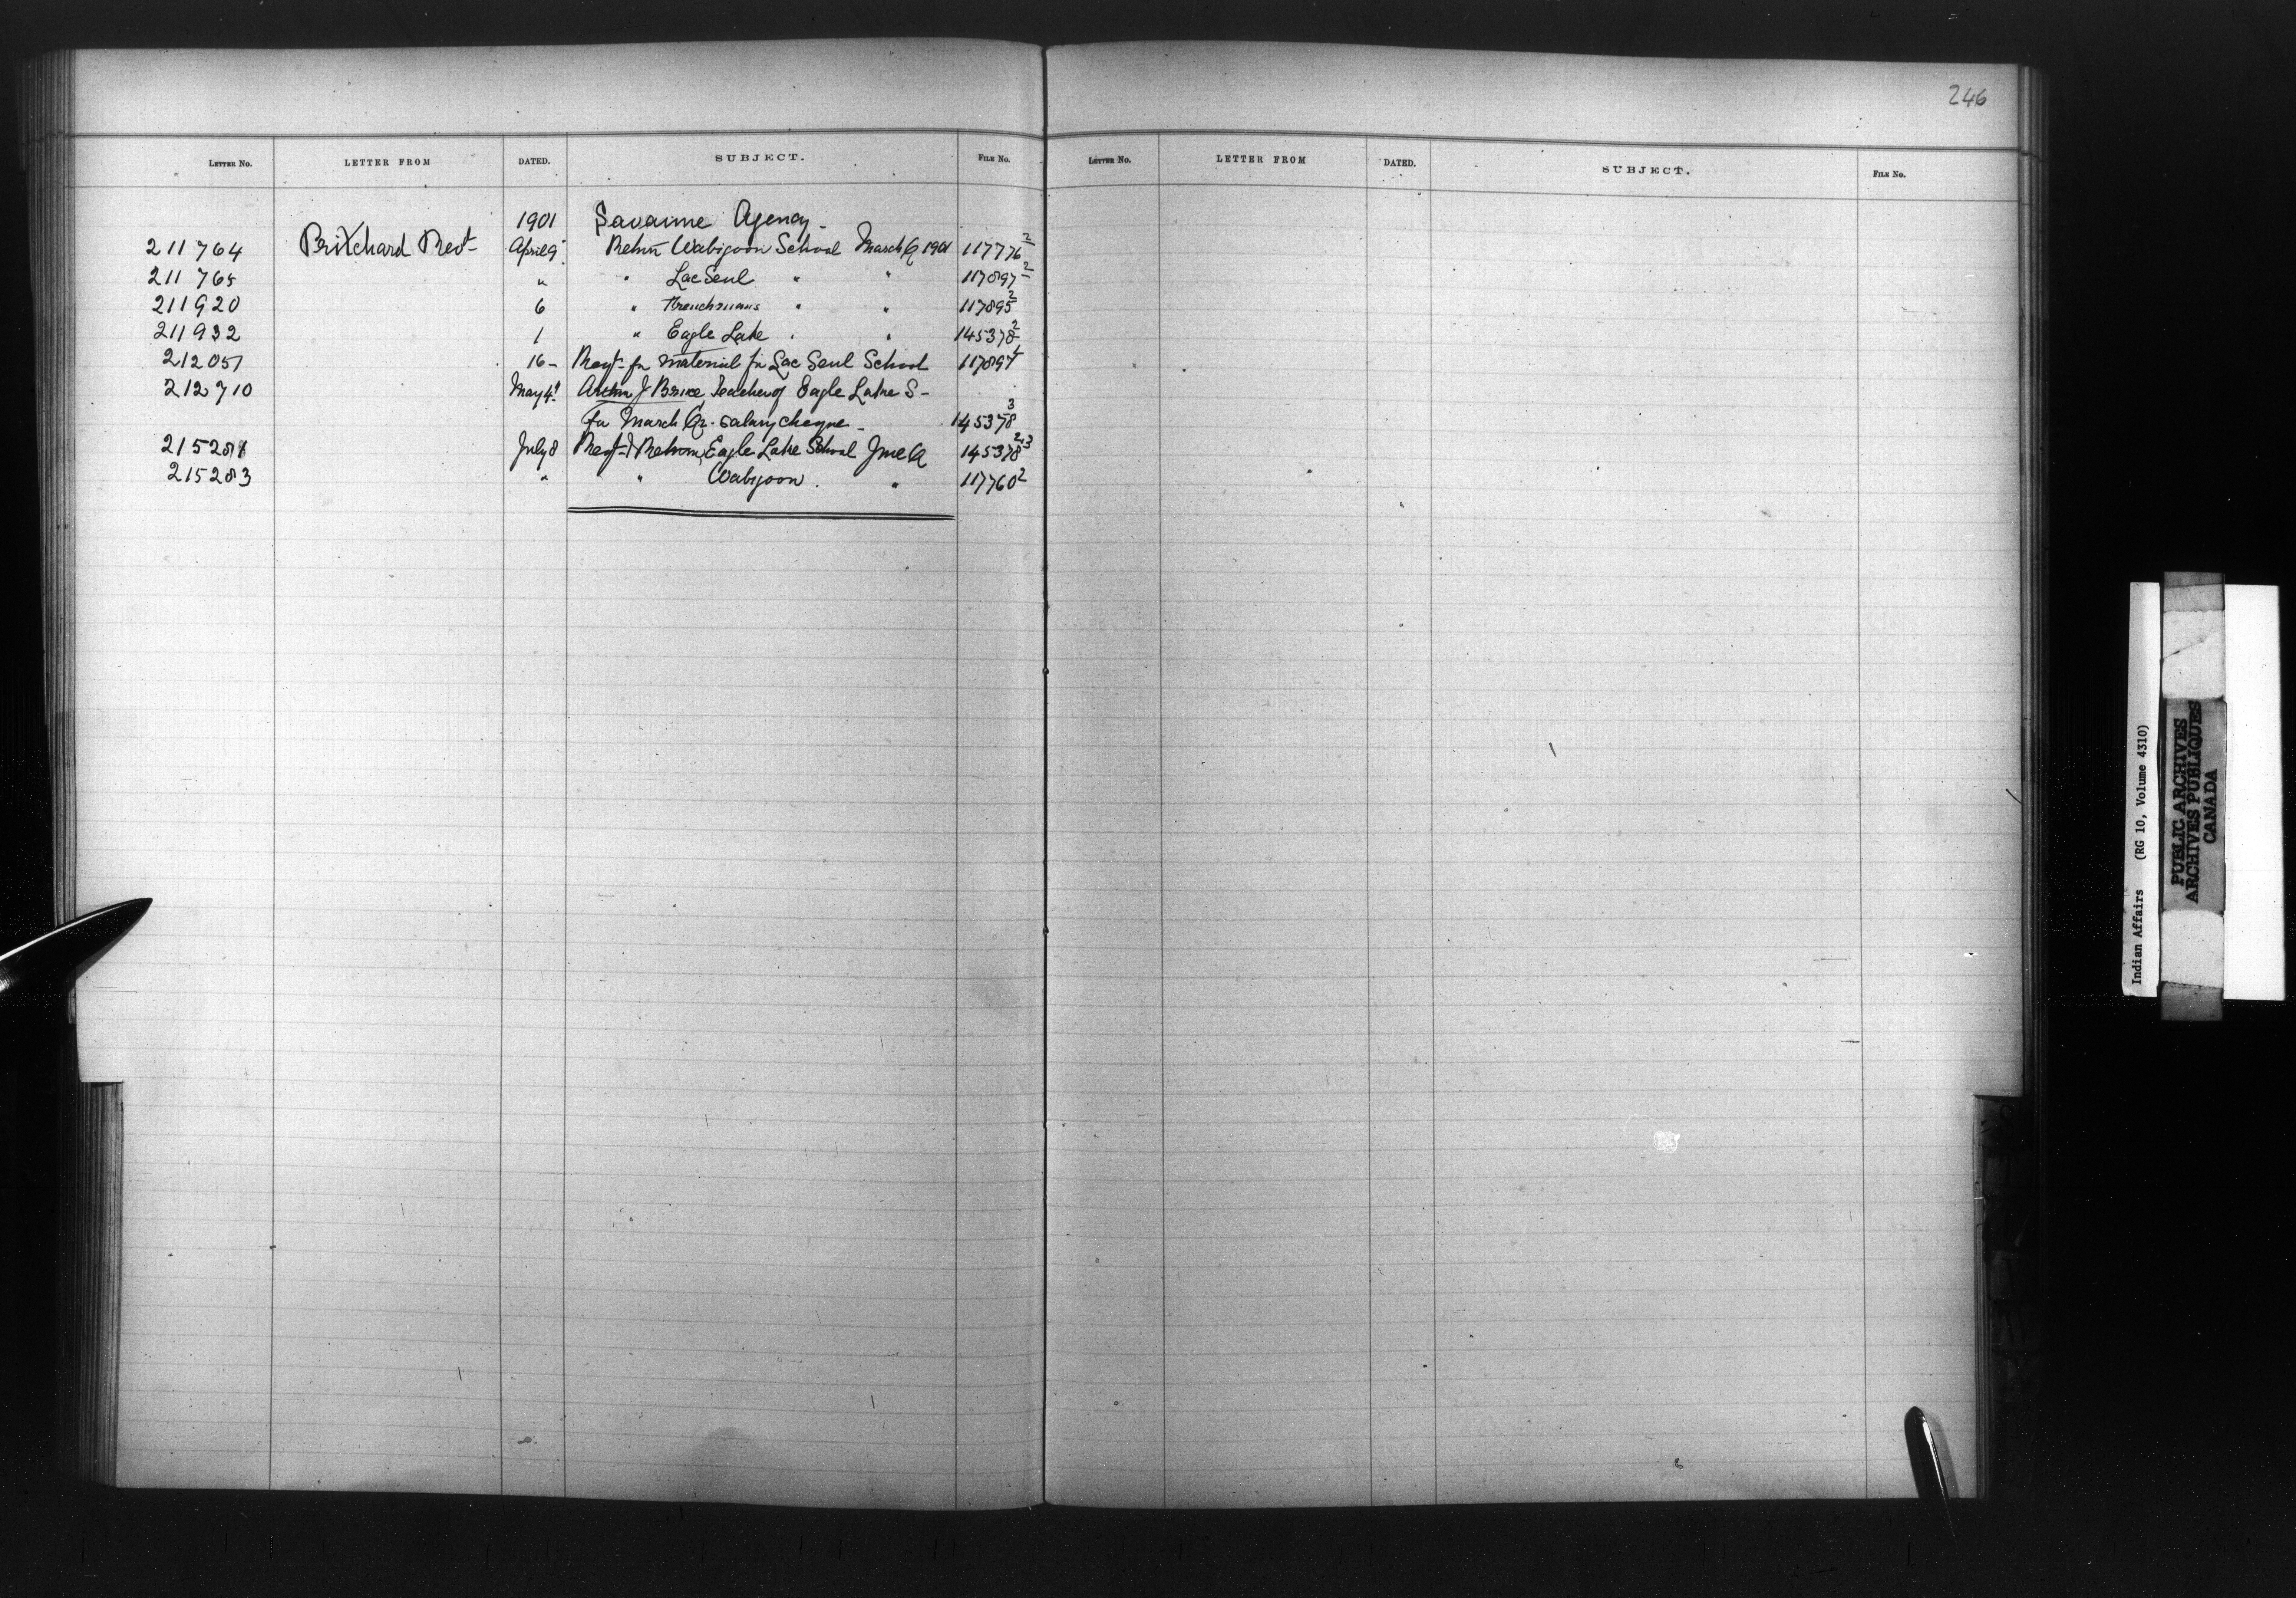 246
LETTER NO. LETTER FROM DATED. SUBJECT. FILE NO. LETTER NO. LETTER FROM DATED. SUBJECT. FILE NO.
1901 Savanne Agency -
211764 Pritchard April 9 Retn Wabigoon School March Q 1901 117776 2
211765 " " Lac Seul " " 117897 2
211920 6 " Frenchmans " " 117895 2
211932 1 " Eagle Lake " " 145378 2
212051 16 - for material for Lac Seul School 117897 4
212710 May 4 J Brice, Teacher of Eagle Lake S -
for March Qr. salary cheque - 145378 3
July 8 Eagle Lake School June Q 145378 2.3
215283 " " Wabigoon . " 117760 2
Indian Affairs (RG 10, Volume 4310)
PUBLIC ARCHIVES
ARCHIVES PUBLIQUES
CANADA